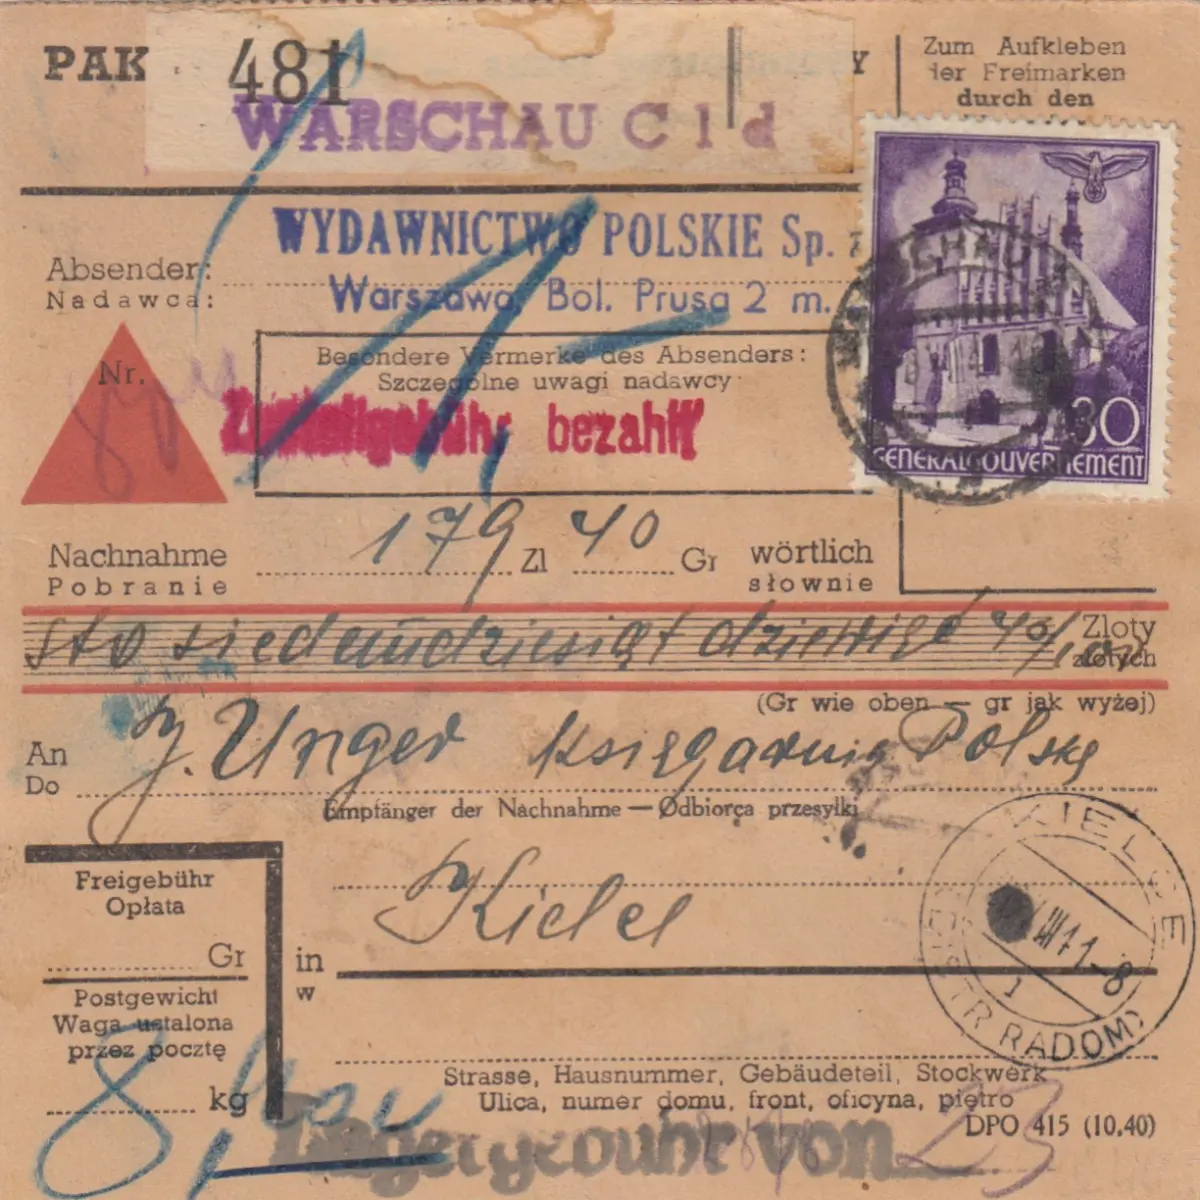 PAK
481
WARSCHAU C 1 d
Y
Zum Aufkleben
der Freimarken
durch den
Absender:
Nadawca:
WYDAWNICTWO POLSKIE Sp. z
Warszawa, Bol. Prusa 2 m.
Nr.
Besondere Vermerke des Absenders:
Szczególne uwagi nadawcy
Zustellgebühr bezahlt
WARSCHAU
30
GENERALGOUVERNEMENT
Nachnahme
Pobranie
179 Zl 40 Gr
wörtlich
słownie
sto siedemdziesiąt dziewięć 40/100
Zloty
złotych
(Gr wie oben — gr jak wyżej)
An
Do
J. Unger Księgarnia Polska
Empfänger der Nachnahme — Odbiorca przesyłki
Freigebühr
Opłata
Gr
Kielce
in
w
KIELCE
(DISTR RADOM)
Postgewicht
Waga ustalona
przez pocztę
kg
8,
Strasse, Hausnummer, Gebäudeteil, Stockwerk
Ulica, numer domu, front, oficyna, piętro
DPO 415 (10.40)
Lagergebühr von
23